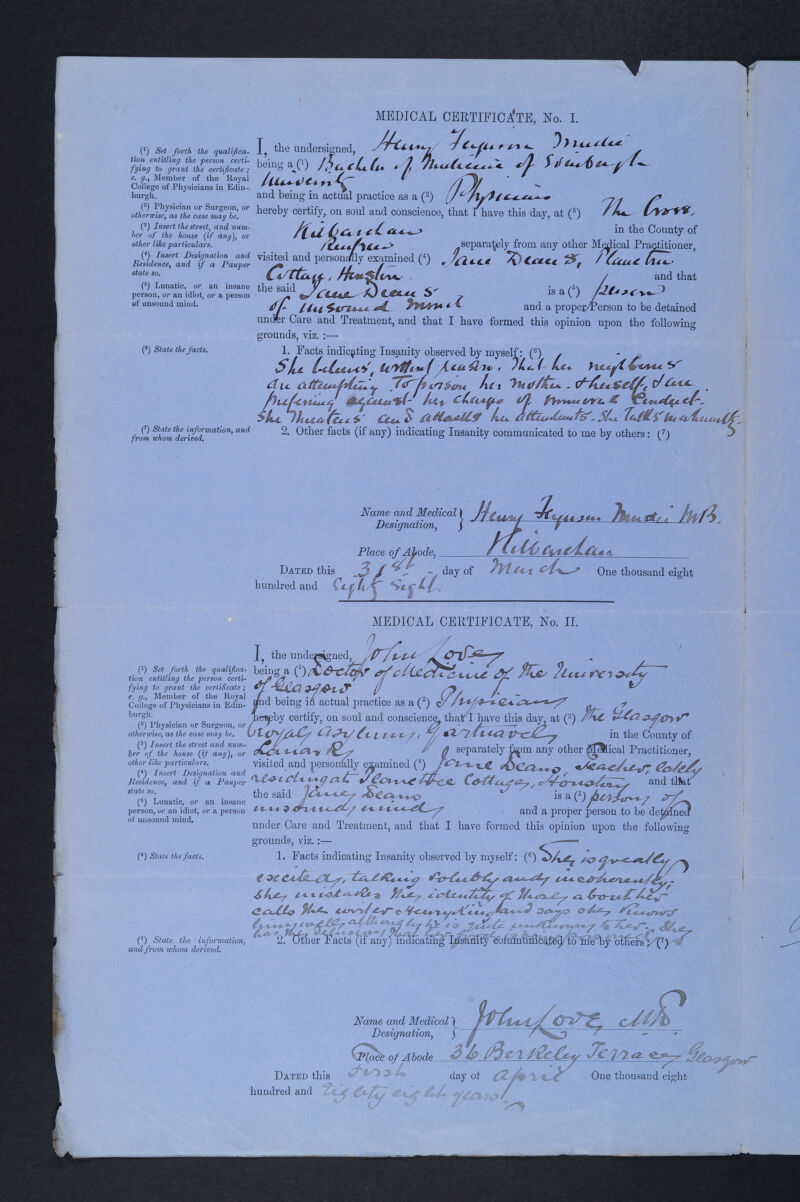 MEDICAL CERTIFICATE, No. I.
(¹) Set forth the qualifica-
tion entitling the person certi-
fying to grant the certificate;
e. g., Member of the Royal
College of Physicians in Edin-
burgh.
(²) Physician or Surgeon, or
otherwise, as the case may be.
(³) Insert the street, and num-
ber of the house (if any), or
other like particulars.
(⁴) Insert Designation and
Residence, and if a Pauper
state so.
(⁵) Lunatic, or an insane
person, or an idiot, or a person
of unsound mind.
I, the undersigned, Henry Ferguson Mudie
being a (¹) Bachelor of Medicine of Edinburgh
University
and being in actual practice as a (²) Physician
hereby certify, on soul and conscience, that I have this day, at (³) The Cross.
Kilbarchan in the County of
Renfrew separately from any other Medical Practitioner,
visited and personally examined (⁴) Jane Deans, Planetree
Cottage, Houston and that
the said Jane Deans is a (⁵) person
of unsound mind and a proper Person to be detained
under Care and Treatment, and that I have formed this opinion upon the following
grounds, viz. :—
(⁶) State the facts.
1. Facts indicating Insanity observed by myself: (⁶)
She believes, without reason, that her neighbours
are attempting to poison her mother & herself, & are
preferring against her charges of immoral conduct.
She threatens and attacks her attendants. She talks incoherently.
(⁷) State the information, and
from whom derived.
2. Other facts (if any) indicating Insanity communicated to me by others: (⁷)
Name and Medical Designation, } Henry Ferguson Mudie M.B.
Place of Abode, Kilbarchan
DATED this 31st day of March One thousand eight
hundred and Eighty Eight.
MEDICAL CERTIFICATE, No. II.
(¹) Set forth the qualifica-
tion entitling the person certi-
fying to grant the certificate;
e. g., Member of the Royal
College of Physicians in Edin-
burgh.
(²) Physician or Surgeon, or
otherwise, as the case may be.
(³) Insert the street and num-
ber of the house (if any), or
other like particulars.
(⁴) Insert Designation and
Residence, and if a Pauper
state so.
(⁵) Lunatic, or an insane
person, or an idiot, or a person
of unsound mind.
I, the undersigned, John Love
being a (¹) Doctor of Medicine of the University
of Glasgow
and being in actual practice as a (²) Physician
hereby certify, on soul and conscience, that I have this day, at (³) the Glasgow
Royal Asylum, Gartnavel in the County of
Lanark separately from any other Medical Practitioner,
visited and personally examined (⁴) Jane Deans, Teacher, lately
residing at Planetree Cottage, Houston and that
the said Jane Deans is a (⁵) person of
unsound mind and a proper person to be detained
under Care and Treatment, and that I have formed this opinion upon the following
grounds, viz. :—
(⁶) State the facts.
1. Facts indicating Insanity observed by myself: (⁶) She is greatly
excited, talking volubly and incoherently;
she mistakes the identity of those about her
calls the writer Henry King and says she knows
him well although he is quite unknown to her. She
has the delusion that her food is being poisoned.
(⁷) State the information,
and from whom derived.
2. Other Facts (if any) indicating Insanity communicated to me by others: (⁷)
Name and Medical Designation, } John Love M.B.
Place of Abode 36 Berkeley Terrace, Glasgow
DATED this First day of April One thousand eight
hundred and Eighty eight years.